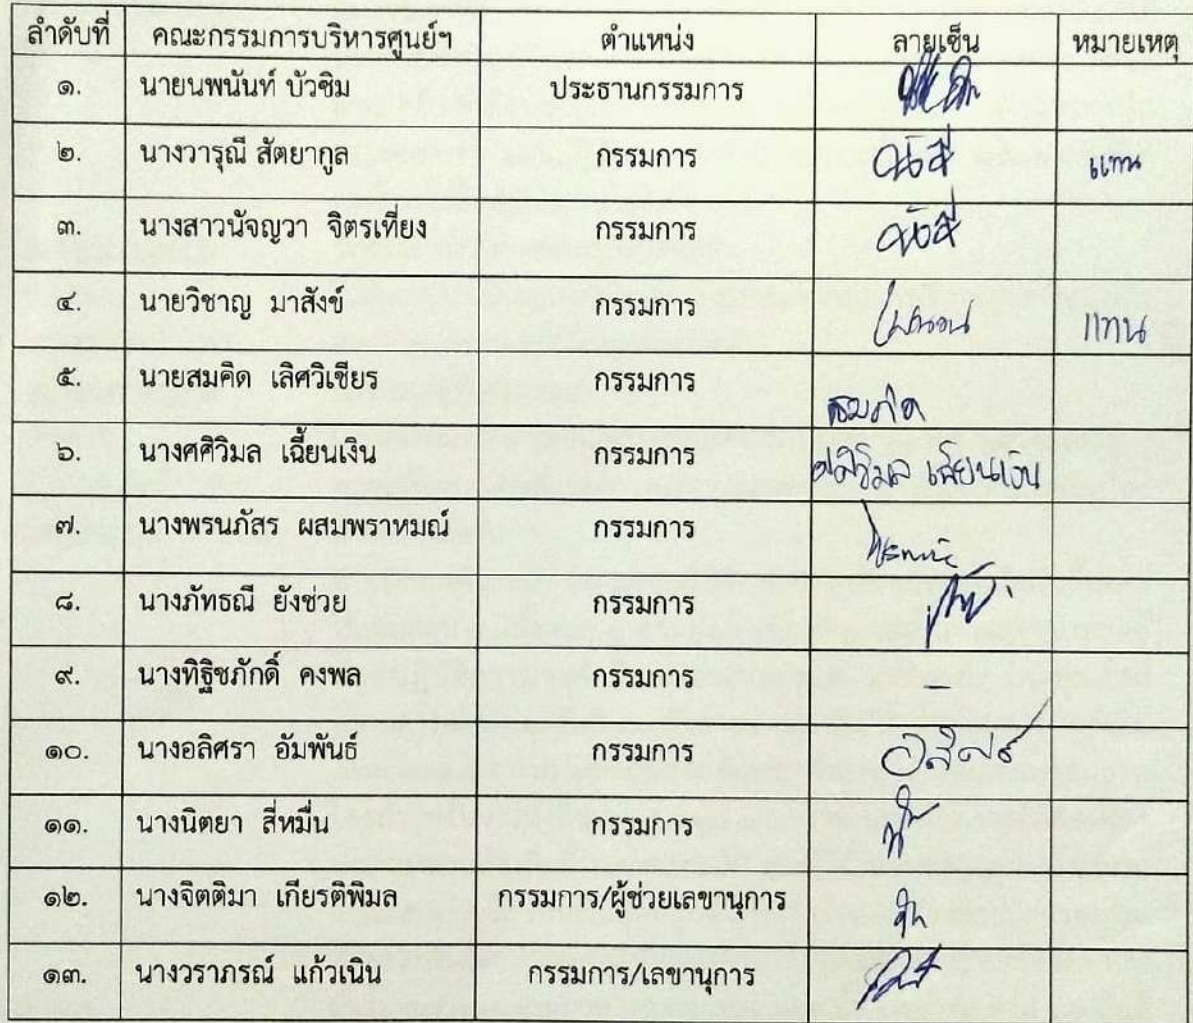 ลำดับที่ คณะกรรมการบริหารศูนย์ฯ ตำแหน่ง ลายเซ็น หมายเหตุ
๑. นายนพนันท์ บัวชิม ประธานกรรมการ
๒. นางวารุณี สัตยากูล กรรมการ แทน
๓. นางสาวนัจญวา จิตรเที่ยง กรรมการ
๔. นายวิชาญ มาสังข์ กรรมการ แทน
๕. นายสมคิด เลิศวิเชียร กรรมการ สมคิด
๖. นางศศิวิมล เฉี้ยนเงิน กรรมการ ศศิวิมล เฉี้ยนเงิน
๗. นางพรนภัสร ผสมพราหมณ์ กรรมการ
๘. นางภัทธณี ยังช่วย กรรมการ
๙. นางทิฐิชภักดิ์ คงพล กรรมการ –
๑๐. นางอลิศรา อัมพันธ์ กรรมการ
๑๑. นางนิตยา สี่หมื่น กรรมการ
๑๒. นางจิตติมา เกียรติพิมล กรรมการ/ผู้ช่วยเลขานุการ
๑๓. นางวราภรณ์ แก้วเนิน กรรมการ/เลขานุการ